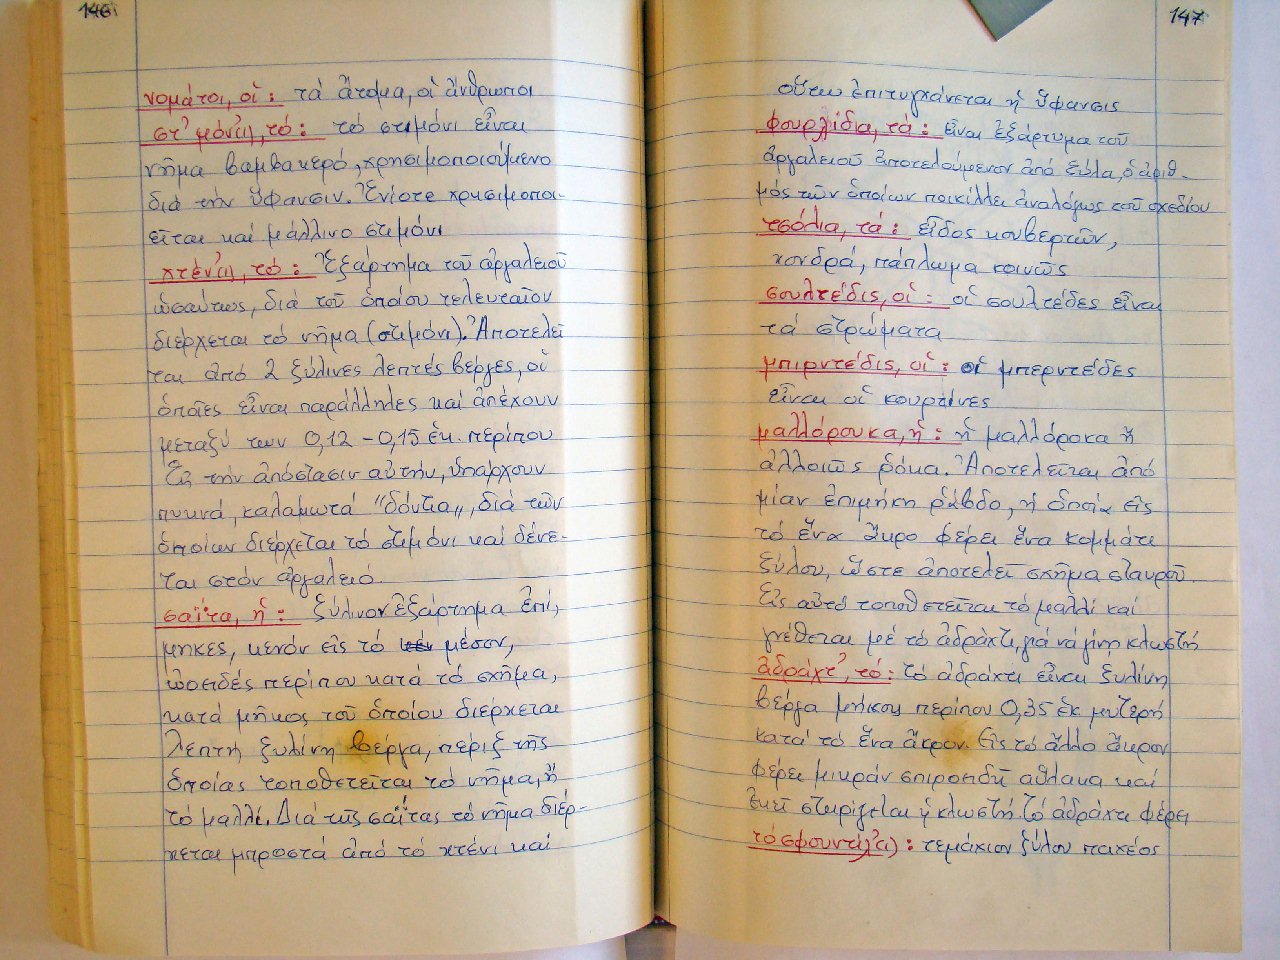 146
νομάτοι, οἱ: τὰ ἄτομα, οἱ ἄνθρωποι
στ᾿μόν(ι), τό: τὸ στιμόνι εἶναι
νῆμα βαμβακερό, χρησιμοποιούμενο
διὰ τὴν ὕφανσιν. Ἐνίοτε χρησιμοποι-
εῖται καὶ μάλλινο στιμόνι
χτέν(ι), τό: Ἐξάρτημα τοῦ ἀργαλειοῦ
ὡσαύτως, διὰ τοῦ ὁποίου τελευταῖον
διέρχεται τὸ νῆμα (στιμόνι). Ἀποτελεῖ
ται ἀπό 2 ξύλινες λεπτές βέργες, οἱ
ὁποῖες εἶναι παράλληλες καὶ ἀπέχουν
μεταξύ των 0,12 – 0,15 ἑκ. περίπου
Εἰς τὴν ἀπόστασιν αὐτήν, ὑπάρχουν
πυκνά, καλαμωτά "δόντια", διὰ τῶν
ὁποίων διέρχεται τὸ στιμόνι καὶ δένε-
ται στόν ἀργαλειό.
σαΐτα, ἡ: ξύλινον ἐξάρτημα ἐπί,
μηκες, κενόν εἰς τὸ μέσον,
ὠοειδές περίπου κατά τὸ σχῆμα,
κατά μῆκος τοῦ ὁποίου διέρχεται
λεπτή ξυλίνη βέργα, πέριξ τῆς
ὁποίας τοποθετεῖται τὸ νῆμα, ἤ
τὸ μαλλί. Διά τῆς σαΐτας τὸ νῆμα διέρ-
χεται μπροστά ἀπό τὸ χτένι καί
147
οὕτω ἐπιτυγχάνεται ἡ ὕφανσις
φουρλίδια, τά: εἶναι ἐξάρτυμα τοῦ
ἀργαλειοῦ ἀποτελούμενον ἀπό ξύλα, ὁ ἀριθ-
μός τῶν ὁποίων ποικίλλει ἀναλόγως τοῦ σχεδίου
τσόλια, τά: εἶδος κουβερτῶν,
χονδρά, πάπλωμα κοινῶς
σουλτέδις, οἱ: οἱ σουλτέδες εἶναι
τά στρώματα
μπιρντέδις, οἱ: οἱ μπερντέδες
εἶναι οἱ κουρτίνες
μαλλόρουκα, ἡ: ἡ μαλλόροκα ἤ
ἀλλοιῶς ρόκα. Ἀποτελεῖται ἀπό
μίαν ἐπιμήκη ράβδο, ἡ ὁποία εἰς
τὸ ἕνα ἄκρο φέρει ἕνα κομμάτι
ξύλου, ὥστε ἀποτελεῖ σχῆμα σταυροῦ.
Εἰς αὐτό τοποθετεῖται τό μαλλί καί
γνέθεται μέ τὸ ἀδράχτι, γιά νά γίνη κλωστή
ἀδράχτ᾿, τό: τὸ ἀδράχτι εἶναι ξυλίνη
βέργα μήκους περίπου 0,35 ἑκ μυτερή
κατά τὸ ἕνα ἄκρον. Εἰς τὸ ἄλλο ἄκρον
φέρει μικράν σπιροειδῆ αὔλακα καί
ἐκεῖ στηρίγεται ἡ κλωστή. τὸ ἀδράχτι φέρει
τό σφουντύλ(ι): τεμάχιον ξύλου παχέος